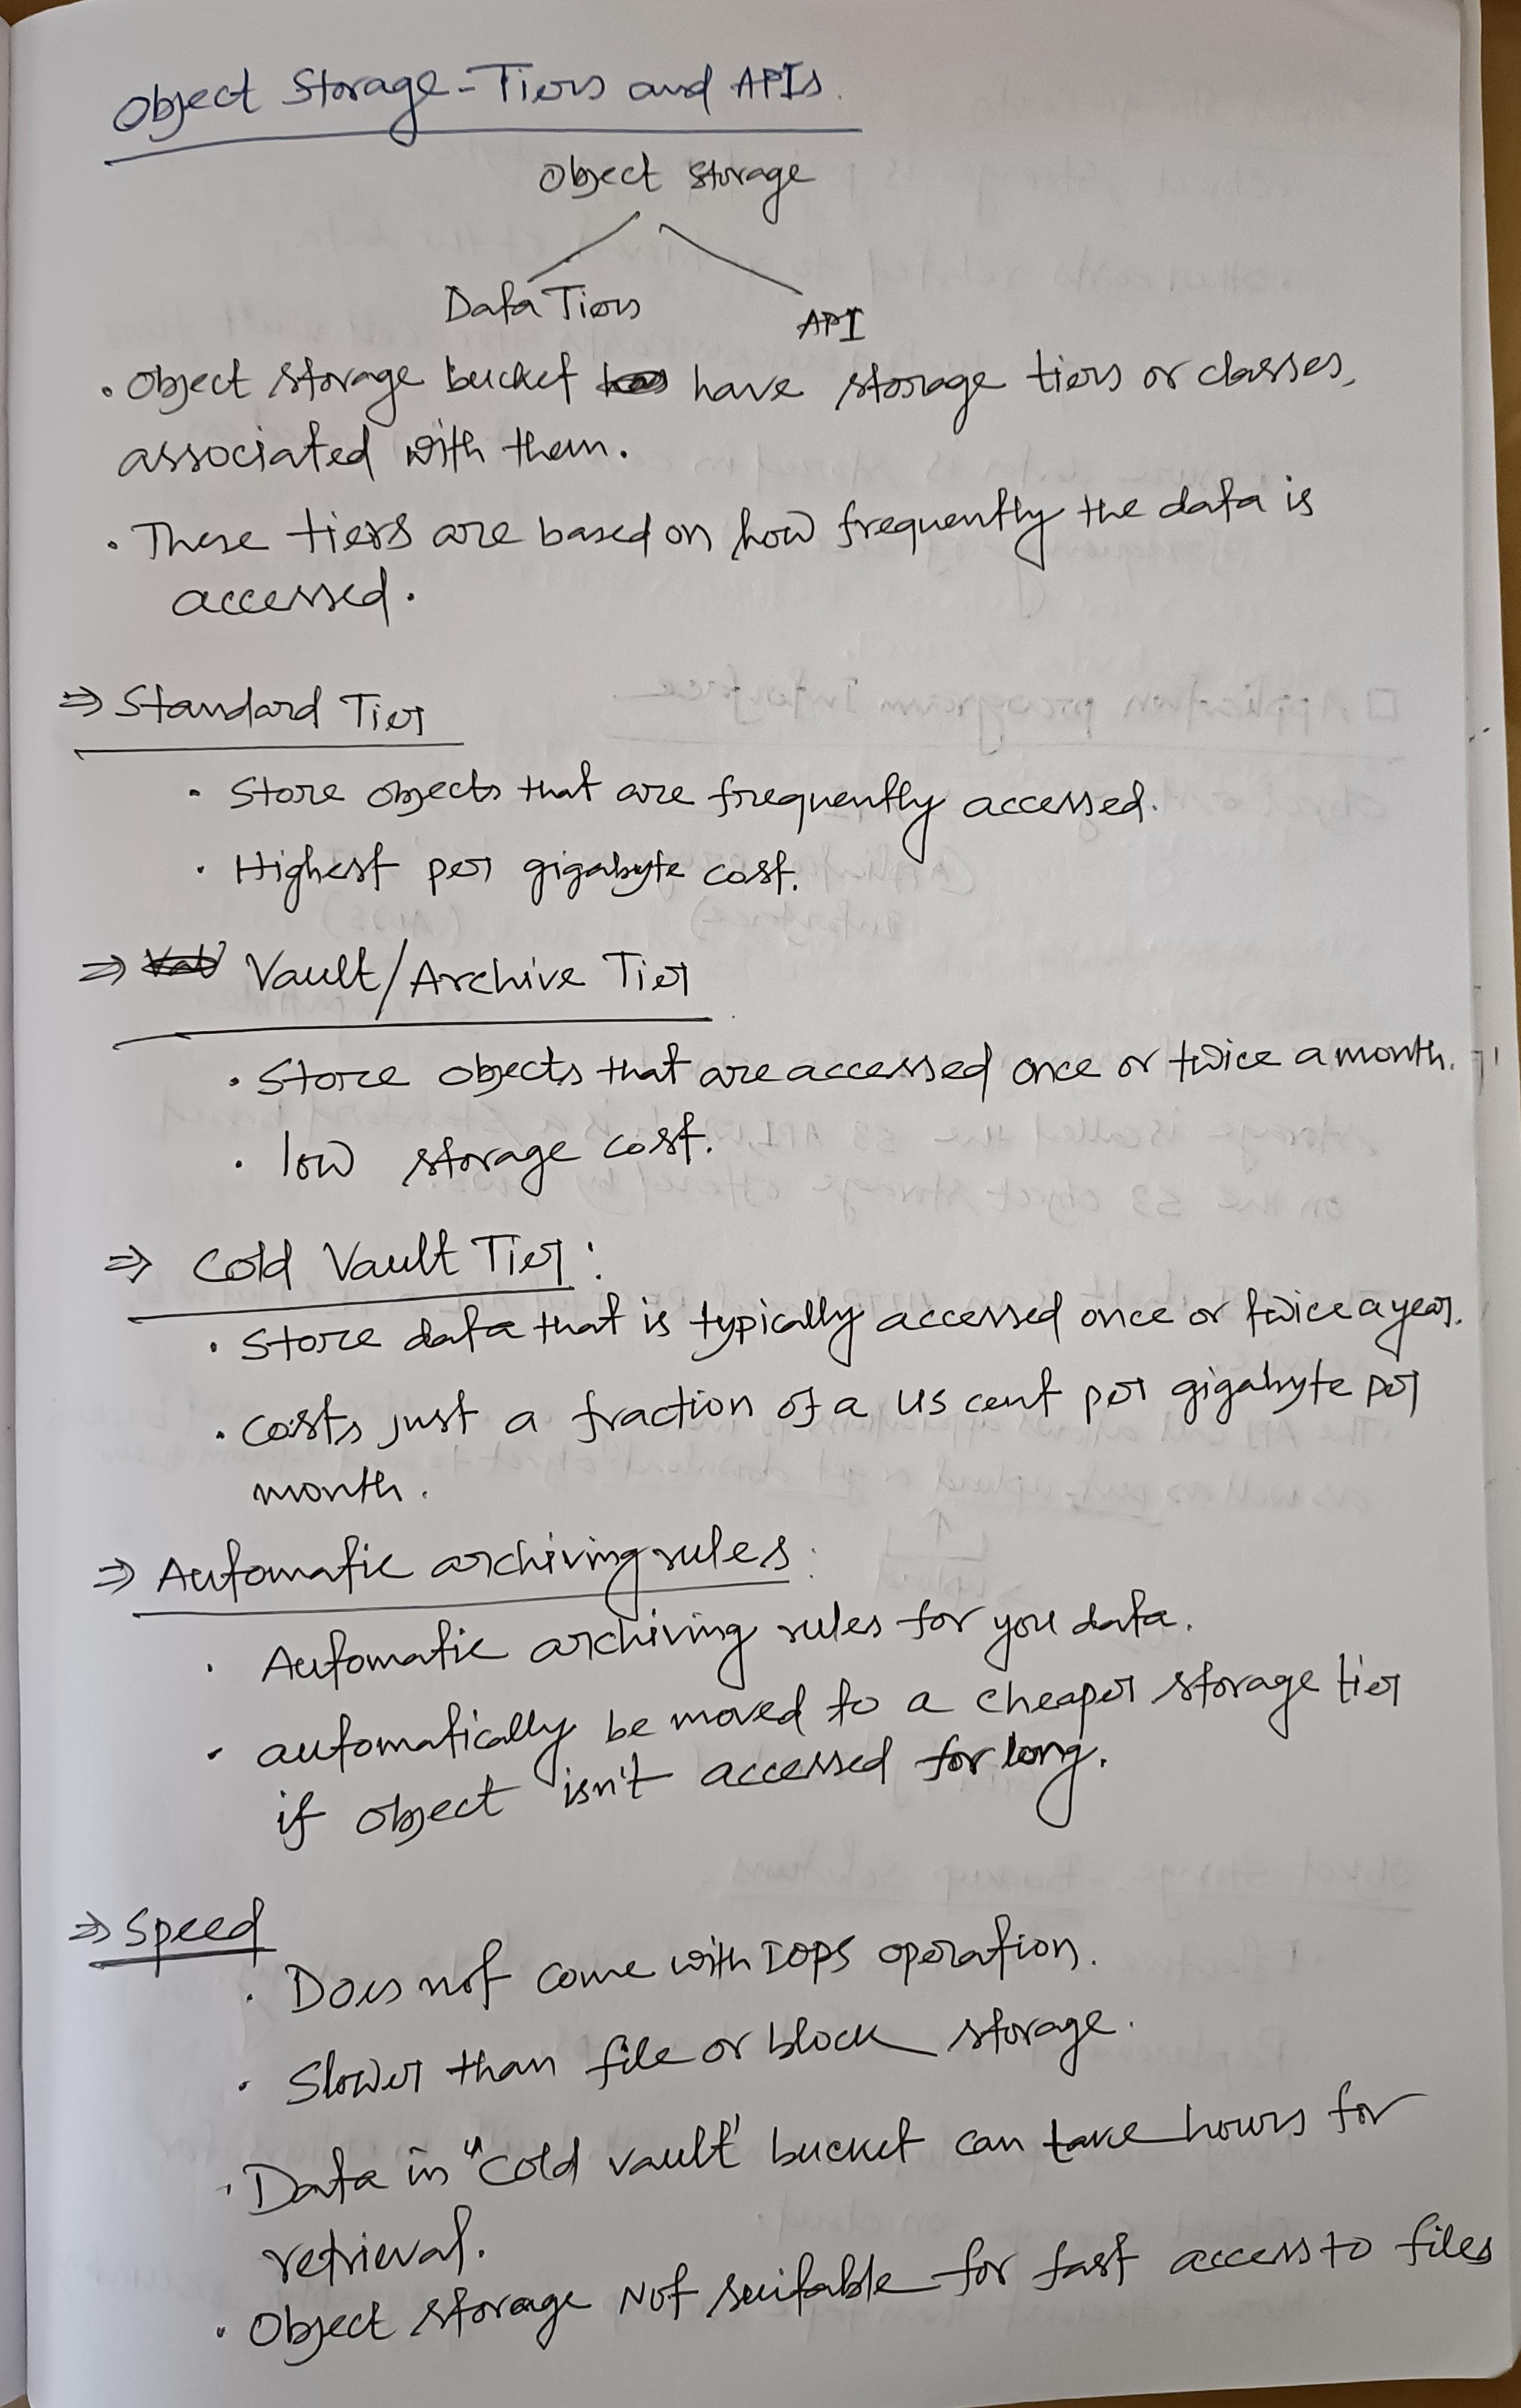 Object Storage - Tiers and APIs.
Object Storage
Data Tiers
API
• Object storage bucket have storage tiers or classes,
associated with them.
• These tiers are based on how frequently the data is
accessed.
⇒ Standard Tier
• Store objects that are frequently accessed.
• Highest per gigabyte cost.
⇒ Vault/Archive Tier
• Store objects that are accessed once or twice a month.
• low storage cost.
⇒ Cold Vault Tier:
• Store data that is typically accessed once or twice a year.
• Costs just a fraction of a US cent per gigabyte per
month.
⇒ Automatic archiving rules:
• Automatic archiving rules for you data.
• automatically be moved to a cheaper storage tier
if object isn't accessed for long.
⇒ Speed
• Does not come with IOPS operation.
• Slower than file or block storage.
• Data in "cold vault" bucket can take hours for
retrieval.
• Object storage Not suitable for fast access to files